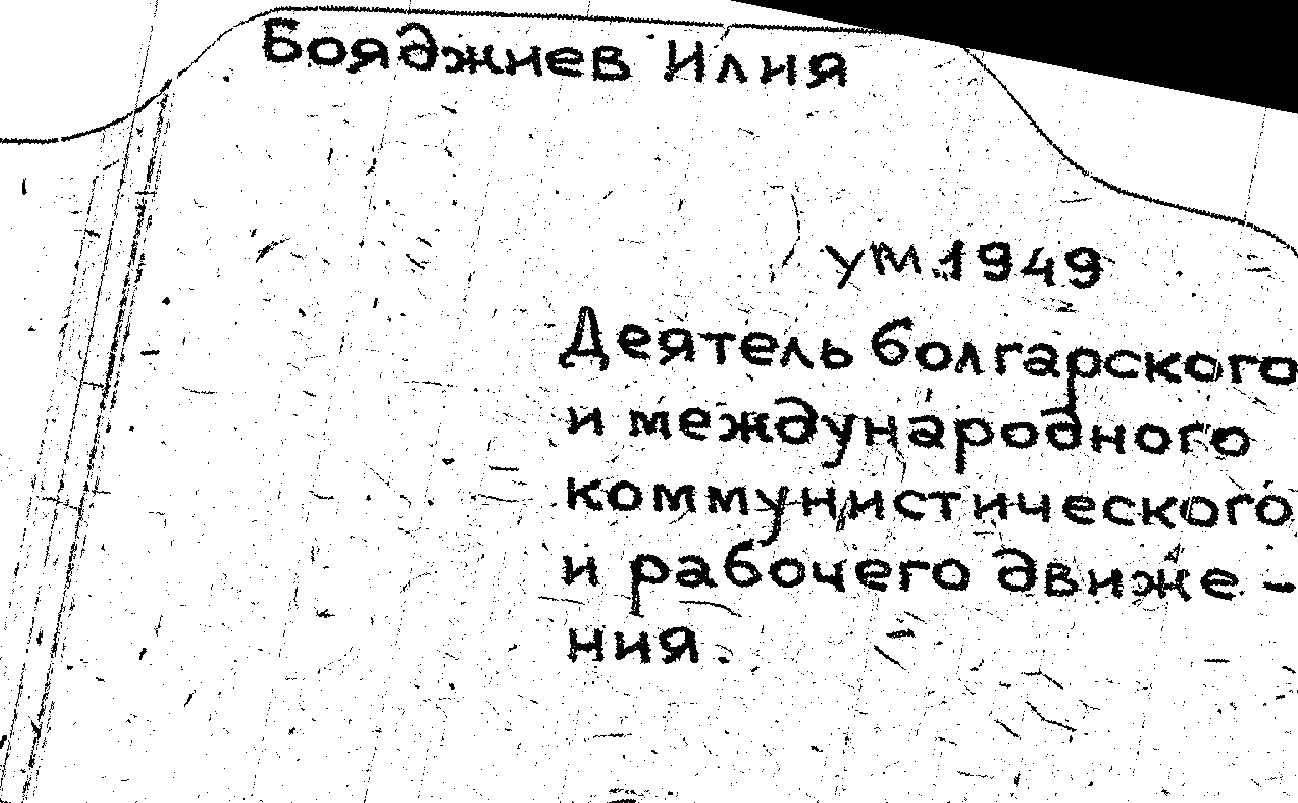 Бояджиев Илия
ум.1949
Деятель болгарского
и международного
коммунистического
и рабочего движе-
ния.